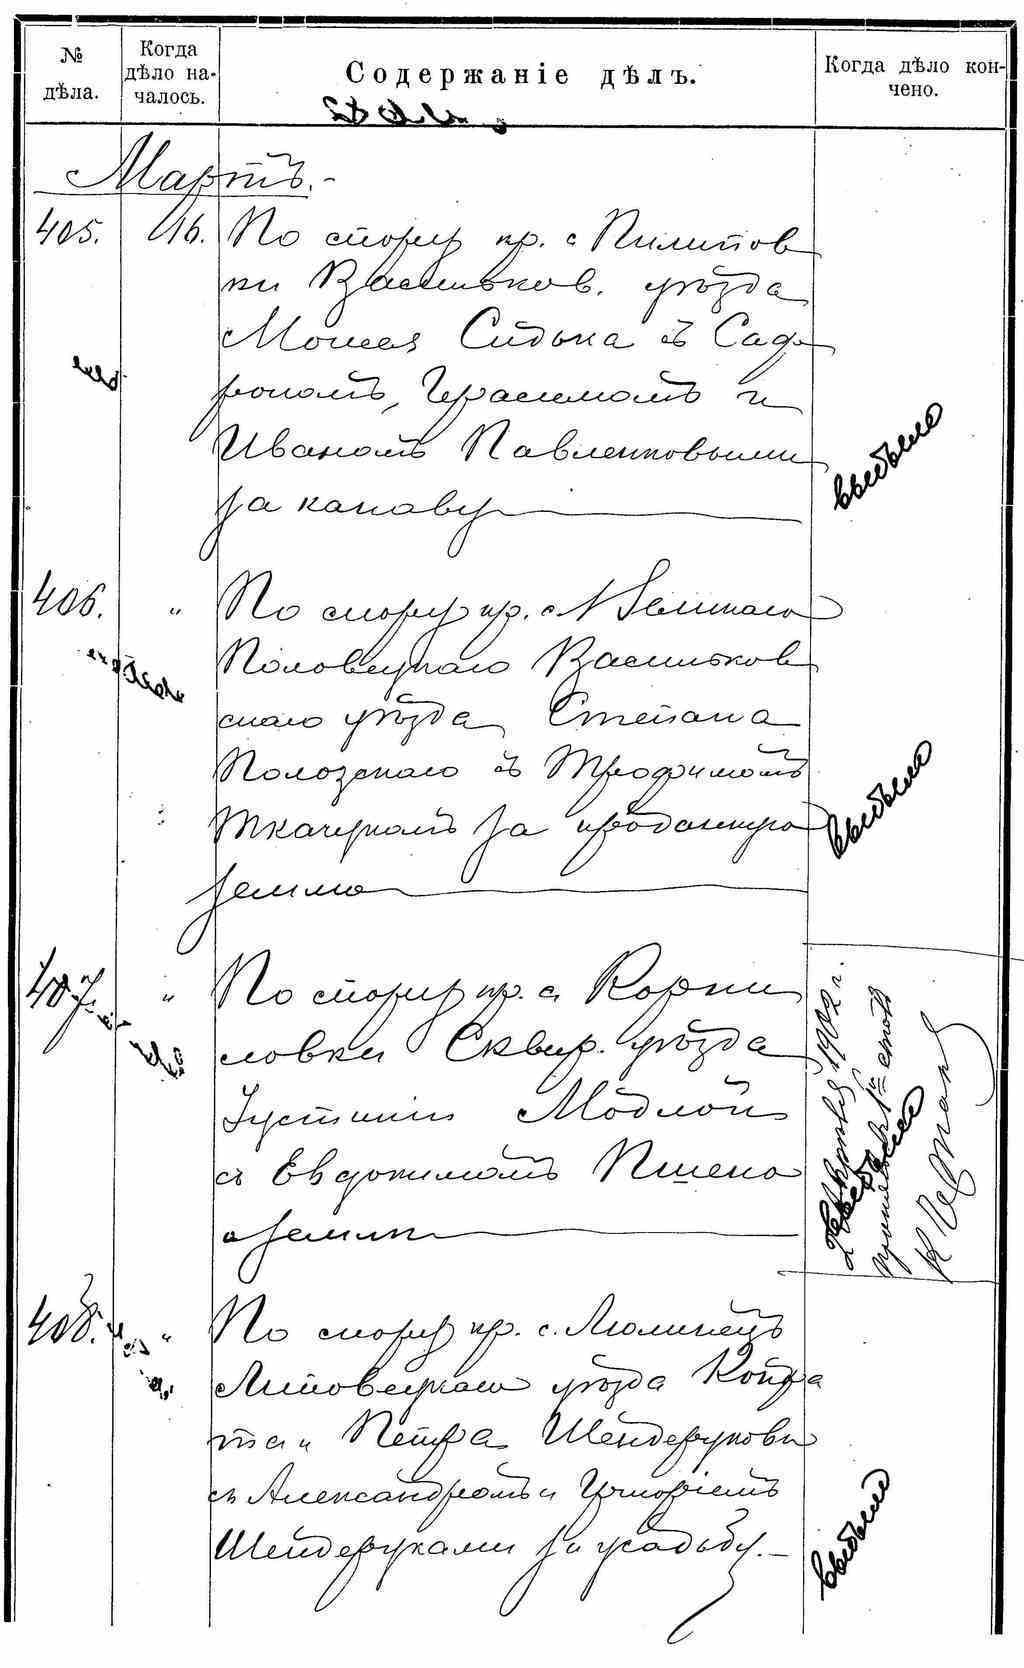 №
дѣла.
Когда
дѣло на-
чалось.
Содержаніе дѣлъ.
Когда дѣло кон-
чено.
Мартъ.-
405.
16.
По спору кр. с Пилипов
ки Васильков. уѣзда
Моисея Сидька съ Саф
рономъ, Герасимомъ и
Иваномъ Павленковыми
за канаву
выбыло
406.
"
По спору кр. с Великаго
Половецкаго Васильков
скаго уѣзда Степана
Полозскаго съ Трофимомъ
Ткачукомъ за проданную
землю
выбыло
407.
"
По спору кр. с Корни
ловки Сквир. уѣзда
Іустиніи Модлой
съ Евдокимомъ Пшено
о землѣ
1902 г.
408.
"
По спору кр. с. Люлинецъ
Липовецкаго уѣзда Кондра
та и Петра Шендеруковы
съ Александромъ и Григоріемъ
Шендеруками за усадьбу.-
выбыло